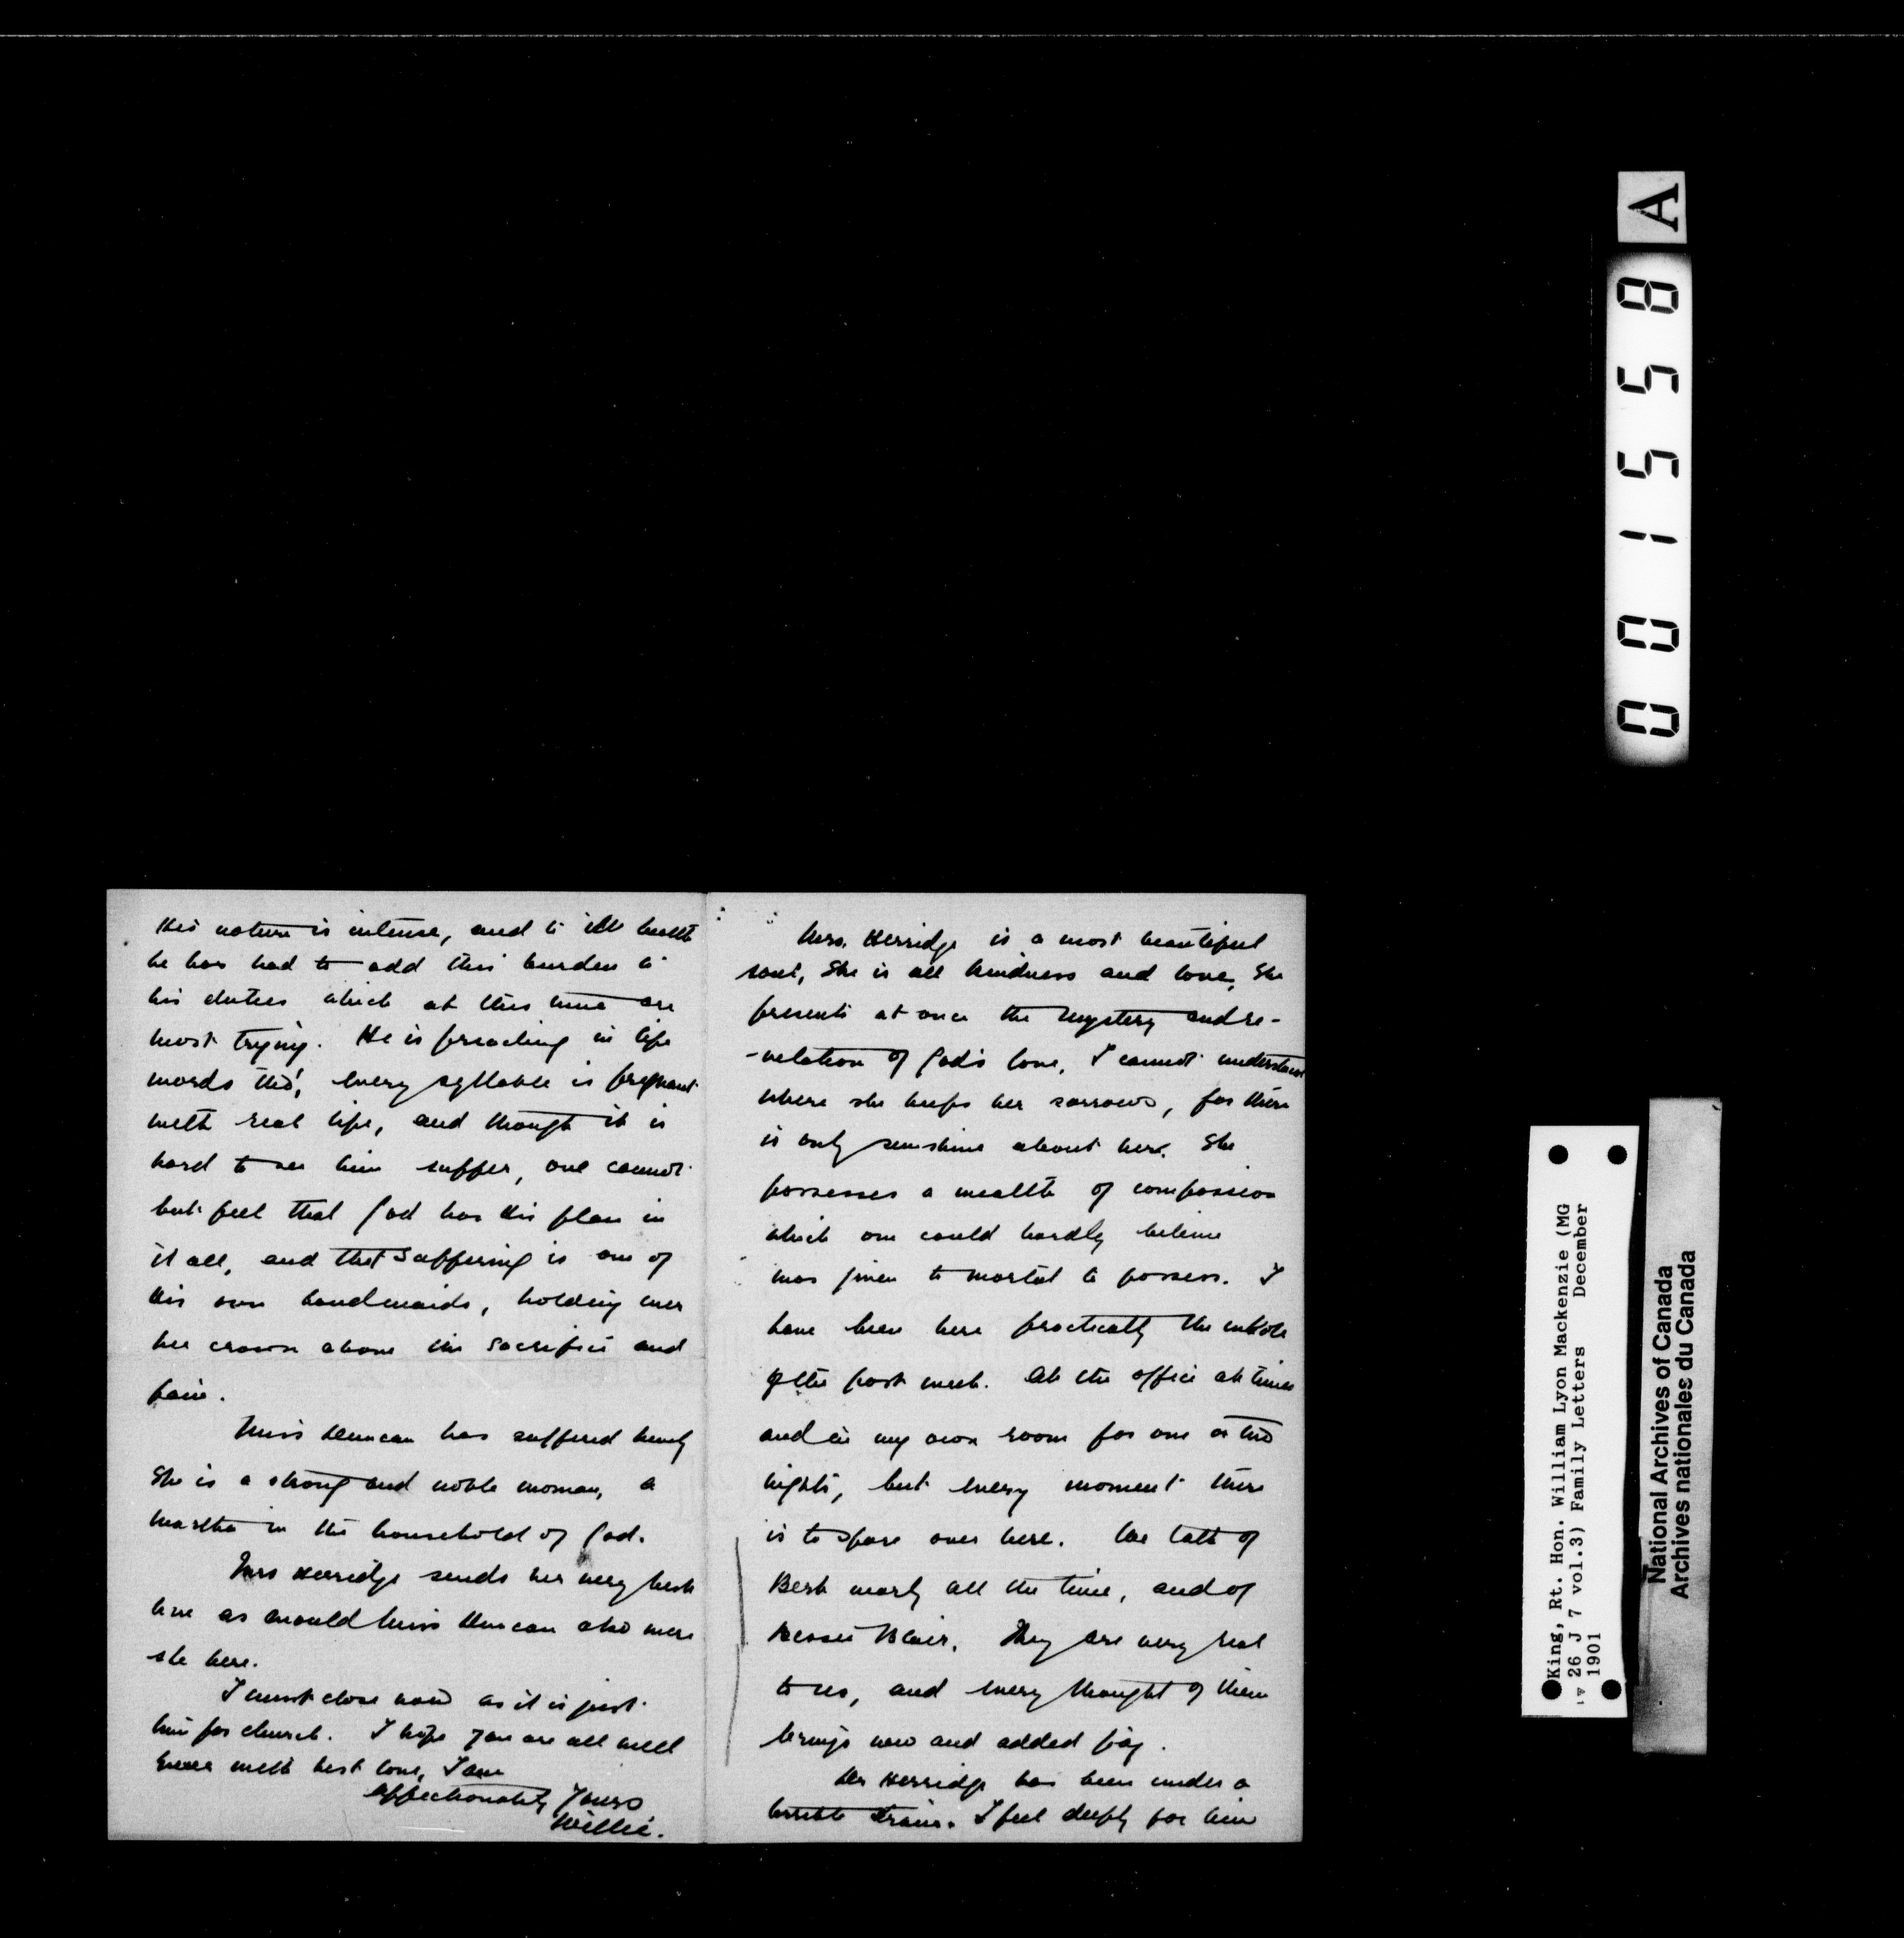 His nature is intense, and to ill health
he has had to add this burden to
his duties which at this time are
most trying. He is preaching in life
words tho', every syllable is pregnant
with real life, and though it is
hard to see him suffer, one cannot
but feel that God has His plan in
it all, and that suffering is one of
His own handmaids, holding ever
her crown above the sacrifice and
pain.
Miss Duncan has suffered
She is a strong and noble woman, a
Martha in the household of God.
Mrs Herridge sends her very best
love as would Miss Duncan also were
she here.
I must close now as it is just
time for church. I hope you are all well
with best love, I am
Affectionately Yours
Willie.
Mrs. Herridge is a most beautiful
soul, She is all kindness and love, She
presents at once the mystery and re-
-velation of God's love, I cannot understand
where she keeps her sorrows, for there
is only sunshine about her. She
possesses a wealth of compassion
which one could hardly believe
was given to mortal to possess. I
have been here practically the whole
of the past week. At the office at times
and in my own room for one or two
nights, but every moment there
is to spare over here. We talk of
Bert nearly all the time, and of
Bessie Blair. They are very real
to us, and every thought of them
brings new and added joy.
Dr Herridge has been under a
terrible strain. I feel deeply for him
A
001558
King, Rt. Hon. William Lyon Mackenzie (MG
26 J 7 vol.3) Family Letters December
1901
National Archives of Canada
Archives nationales du Canada